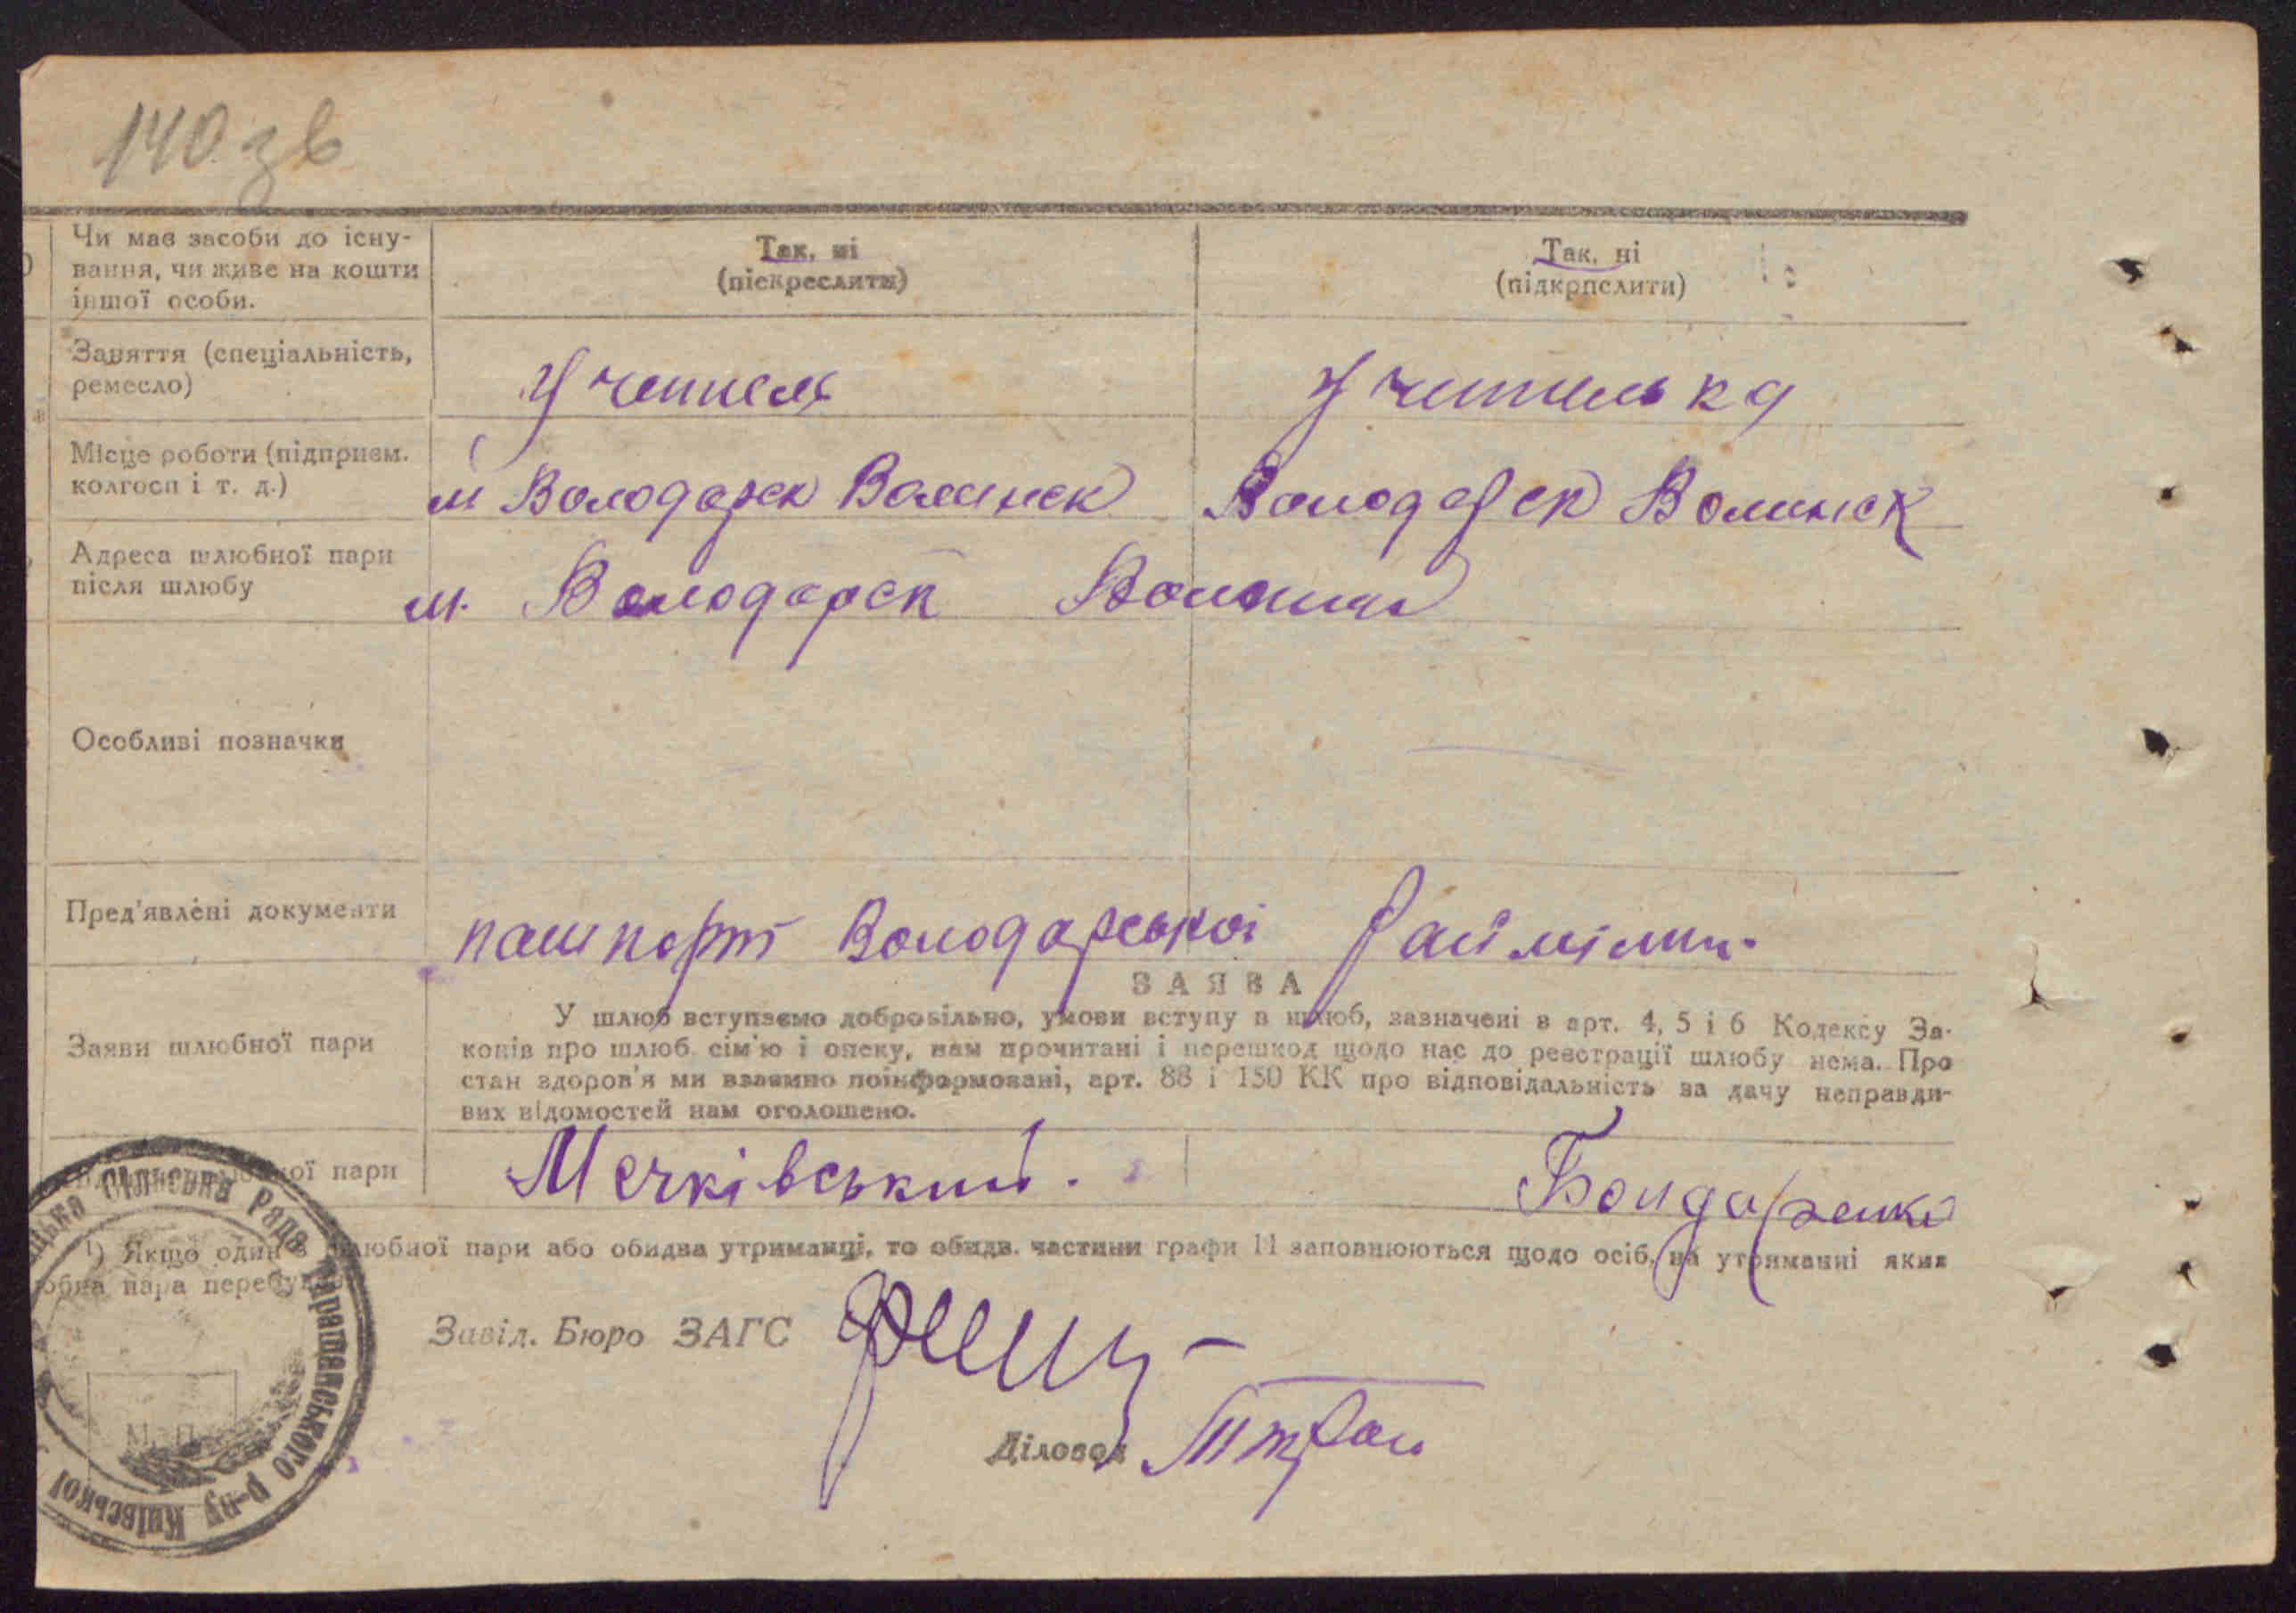 140 зв
Чи має засоби до існу- Так, ні Так, ні
вання, чи живе на кошти (піскреслити) (підкрпслити)
іншої особи.
Заняття (спеціальність,
ремесло) Учитель Учителька
Місце роботи (підприєм.
колгосп і т. д.) м Володарск Волинск Володарск Волинск
Адреса шлюбної пари
після шлюбу м. Володарск
Особливі позначки
Пред'явлені документи пашпорт Володарської Райміліц.
ЗАЯВА
У шлюб вступаємо добровільно, умови вступу в шлюб, зазначені в арт. 4, 5 і 6 Кодексу За-
Заяви шлюбної пари
конів про шлюб, сім'ю і опеку, нам прочитані і перешкод щодо нас до реєстрації шлюбу нема. Про
стан здоров'я ми взаємно поінформовані, арт. 88 і 150 КК про відповідальність за дачу неправди-
вих відомостей нам оголошено.
пари Мечківський. Бондаренко
¹) Якщо один з шлюбної пари або обидва утриманці, то обидв. частини графи 11 заповнюються щодо осіб, на утриманні яких
юбна пара перебуває
Завід. Бюро ЗАГС
Діловод
М. П.
сільська рада Таращанського р-ну Київської